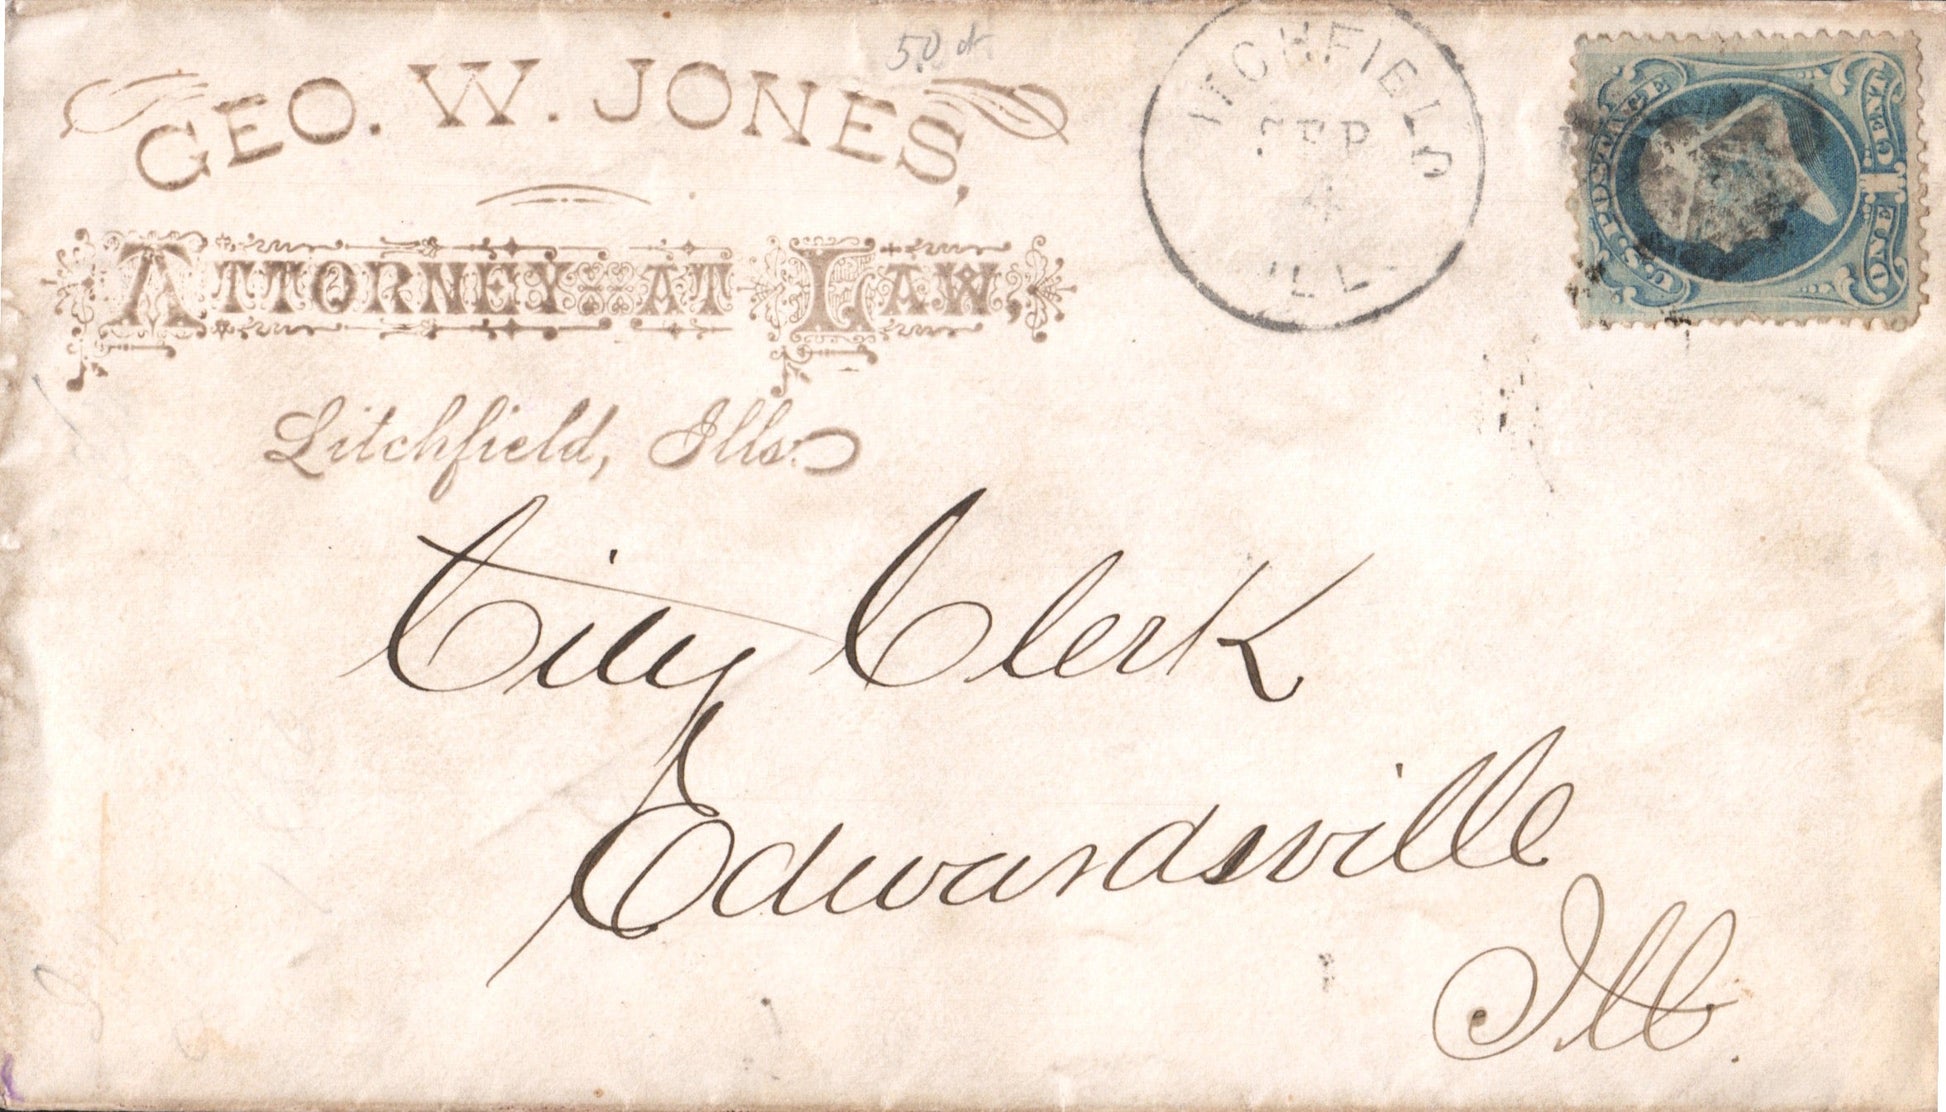 GEO. W. JONES,
ATTORNEY-AT-LAW,
Litchfield, Ills.
LITCHFIELD
SEP
4
ILL
U.S. POSTAGE
ONE 1 CENT
City Clerk
Edwardsville
Ill.